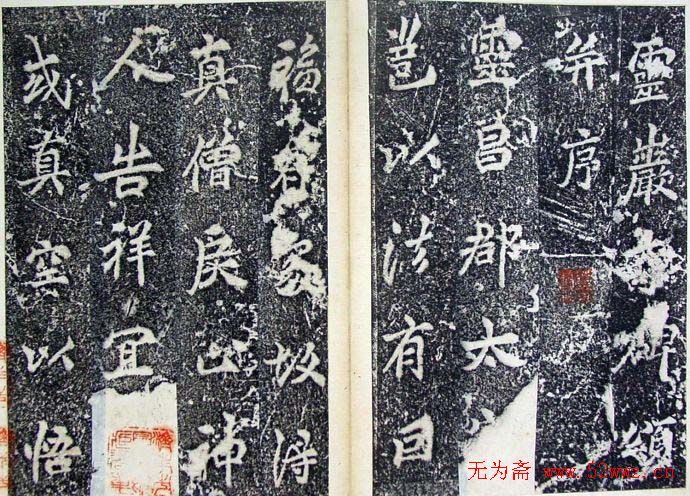 靈巖寺碑頌
并序
靈昌郡太
以法有因
福有故得
真僧戾止神
人告祥宜
或真空以悟
无为斋 www.53wwz.cn